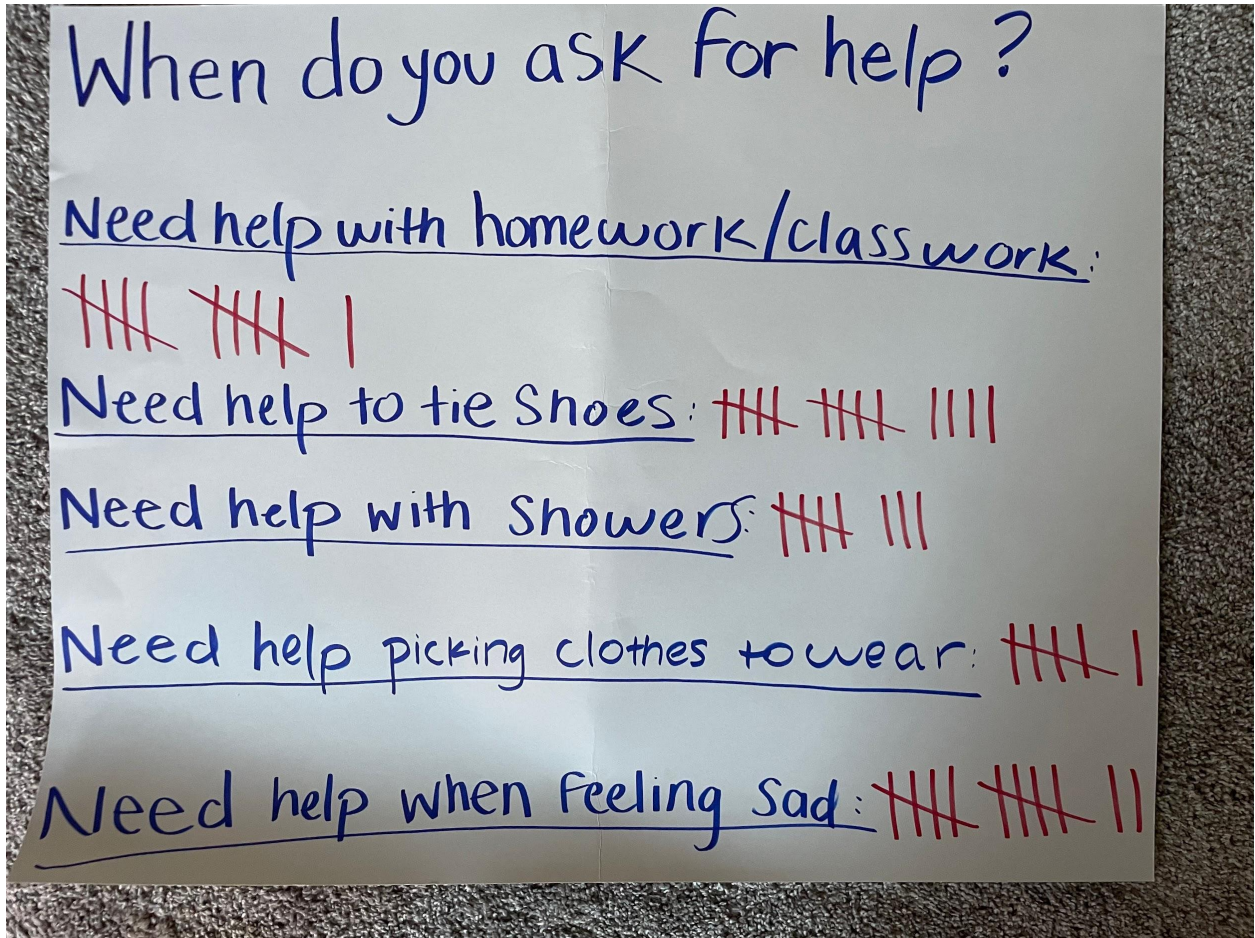 When do you ask for help?
Need help with homework/classwork:
Need help to tie shoes:
Need help with showers:
Need help picking clothes to wear:
Need help when feeling sad: